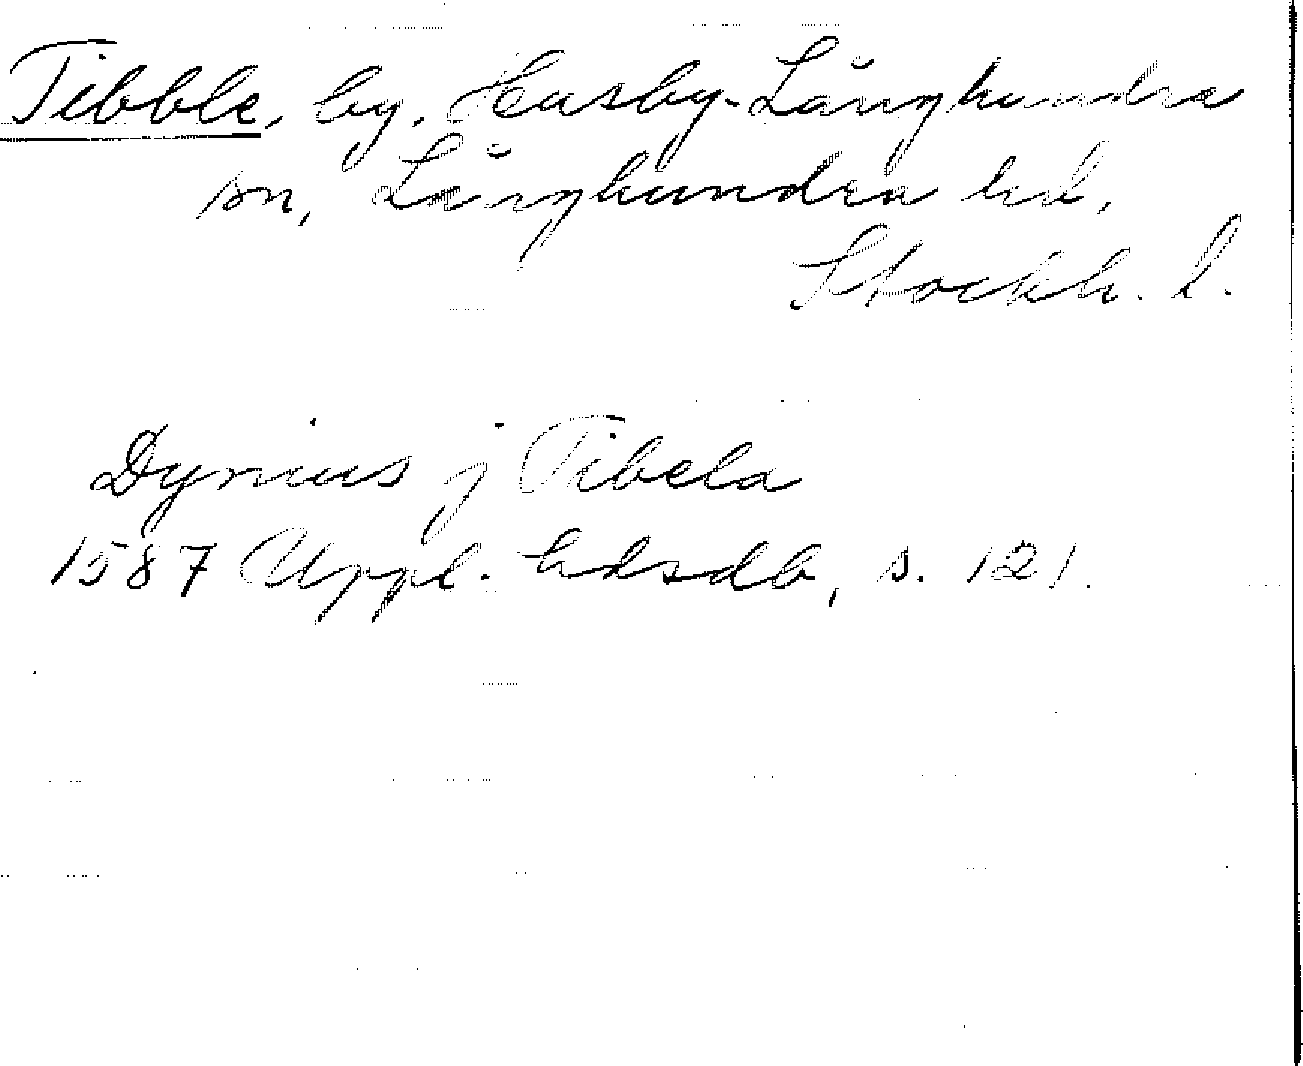 Tibble, by, Husby-Långhundra
sn, Långhundra hd,
Stockh. l.
Dynius j Tibela
1587 Uppl. hdsdb, s. 121.